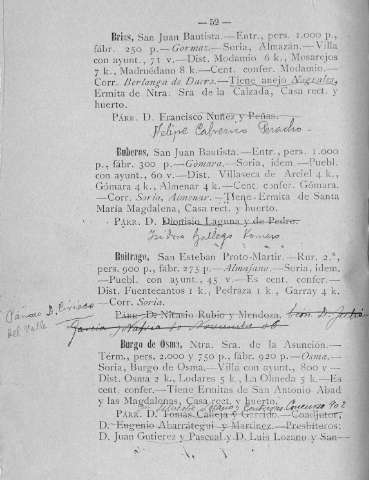 — 52 —
Brias, San Juan Bautista.—Entr., pers. 1.000 p.,
fábr. 250 p.—Gormaz.—Soria, Almazán.—Villa
con ayunt., 71 v.—Dist. Modamio 6 k., Mosarejos
7 k., Madruédano 8 k.—Cent. confer. Modamio.—
Corr. Berlanga de Duero.—Tiene anejo Nograles,
Ermita de Ntra. Sra de la Calzada, Casa rect. y
huerto.
PÁRR. D. Francisco Nuñez y Peñas.
Felipe Cabrerizo
Buberos, San Juan Bautista.—Entr., pers. 1.000
p., fábr. 300 p.—Gómara.—Soria, idem.—Puebl.
con ayunt., 60 v.—Dist. Villaseca de Arciel 4 k.,
Gómara 4 k., Almenar 4 k.—Cent. confer. Gómara.
—Corr. Soria, Almenar.—Tiene Ermita de Santa
María Magdalena, Casa rect. y huerto.
PÁRR. D. Dionisio Laguna y de Pedro.
Isidro Gallego Romero
Buitrago, San Esteban Proto-Martir.—Rur. 2.ª,
pers. 900 p., fábr. 275 p.—Almajano.—Soria, idem,
—Puebl. con ayunt., 45 v.—Es cent. confer.—
Dist. Fuentecantos 1 k., Pedraza 1 k., Garray 4 k.
—Corr. Soria.
Párroco D. Ciriaco
del Valle
PÁRR. D. Nitasio Rubio y Mendoza,
García y
Burgo de Osma, Ntra. Sra. de la Asunción.—
Térm., pers. 2.000 y 750 p., fábr. 920 p.—Osma.—
Soria, Burgo de Osma.—Villa con ayunt., 800 v—
Dist. Osma 2 k., Lodares 5 k., La Olmeda 5 k.—Es
cent. confer.—Tiene Ermitas de San Antonio Abad
y las Magdalenas, Casa rect. y huerto.
Concurso 902
PÁRR. D. Tomás Calleja y Garrido.—Coadjutor,
D. Eugenio Abarrátegui y Martínez.—Presbiteros:
D. Juan Gutierez y Pascual y D. Luis Lozano y San-